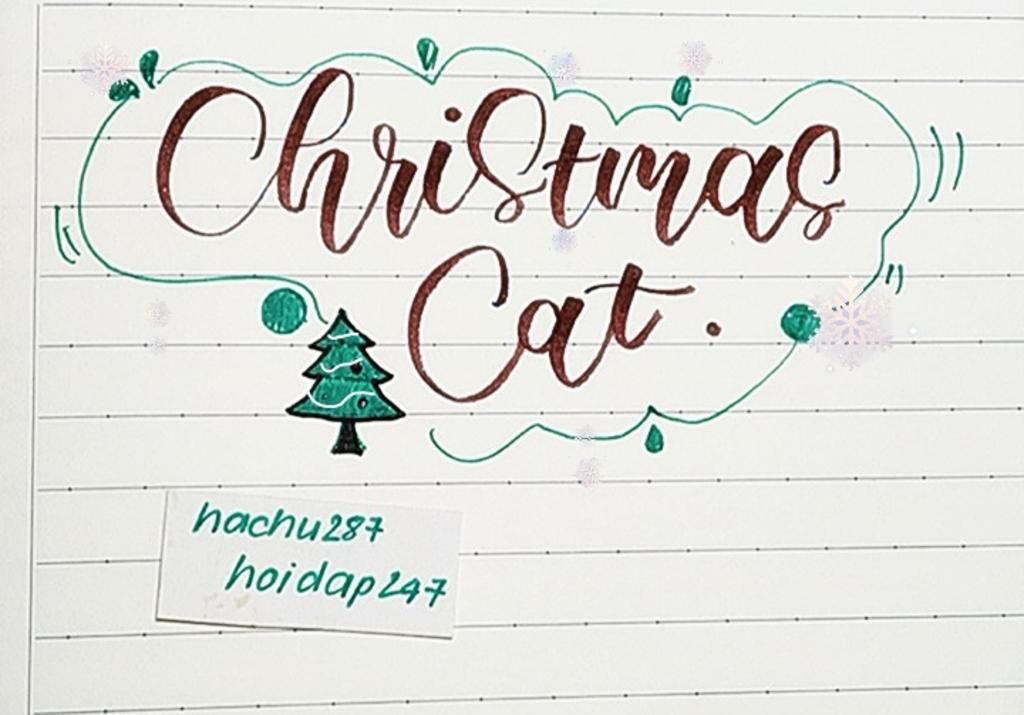 Christmas
Cat.
hachu287
hoidap247